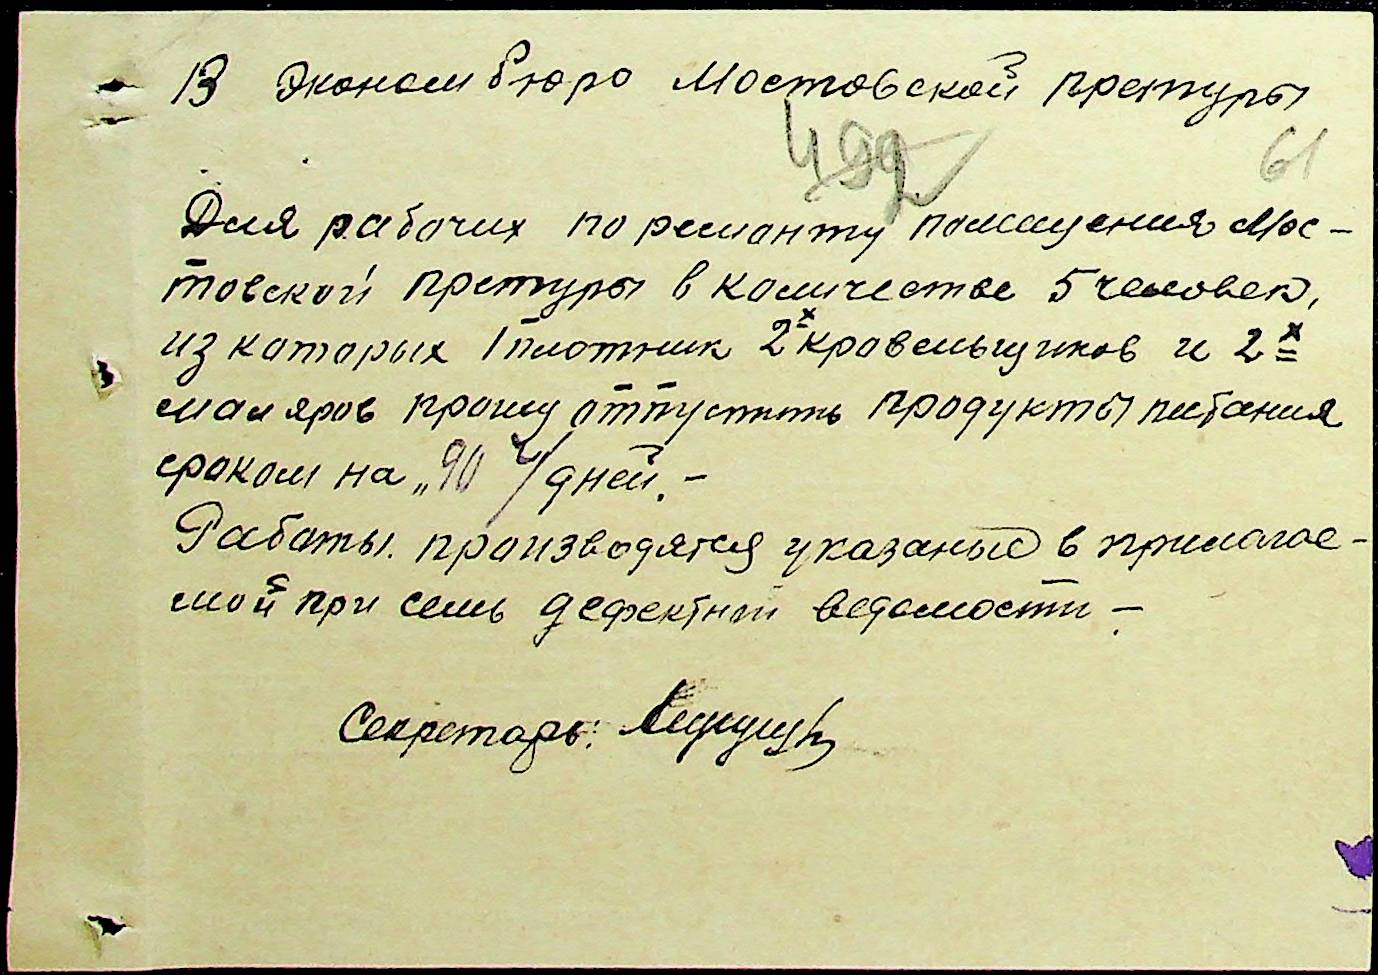 В Эконом бюро Мостовской претуры
499
61
Для рабочих по ремонту помещения Мос-
товской претуры в количестве 5 человек,
из которых 1 плотник 2х кровельщиков и 2х
маляров прошу отпустить продукты питания
сроком на „90“ дней. –
Работы производятся указаные в прилагае-
мой при семь дефектной ведомости –.
Секретарь: